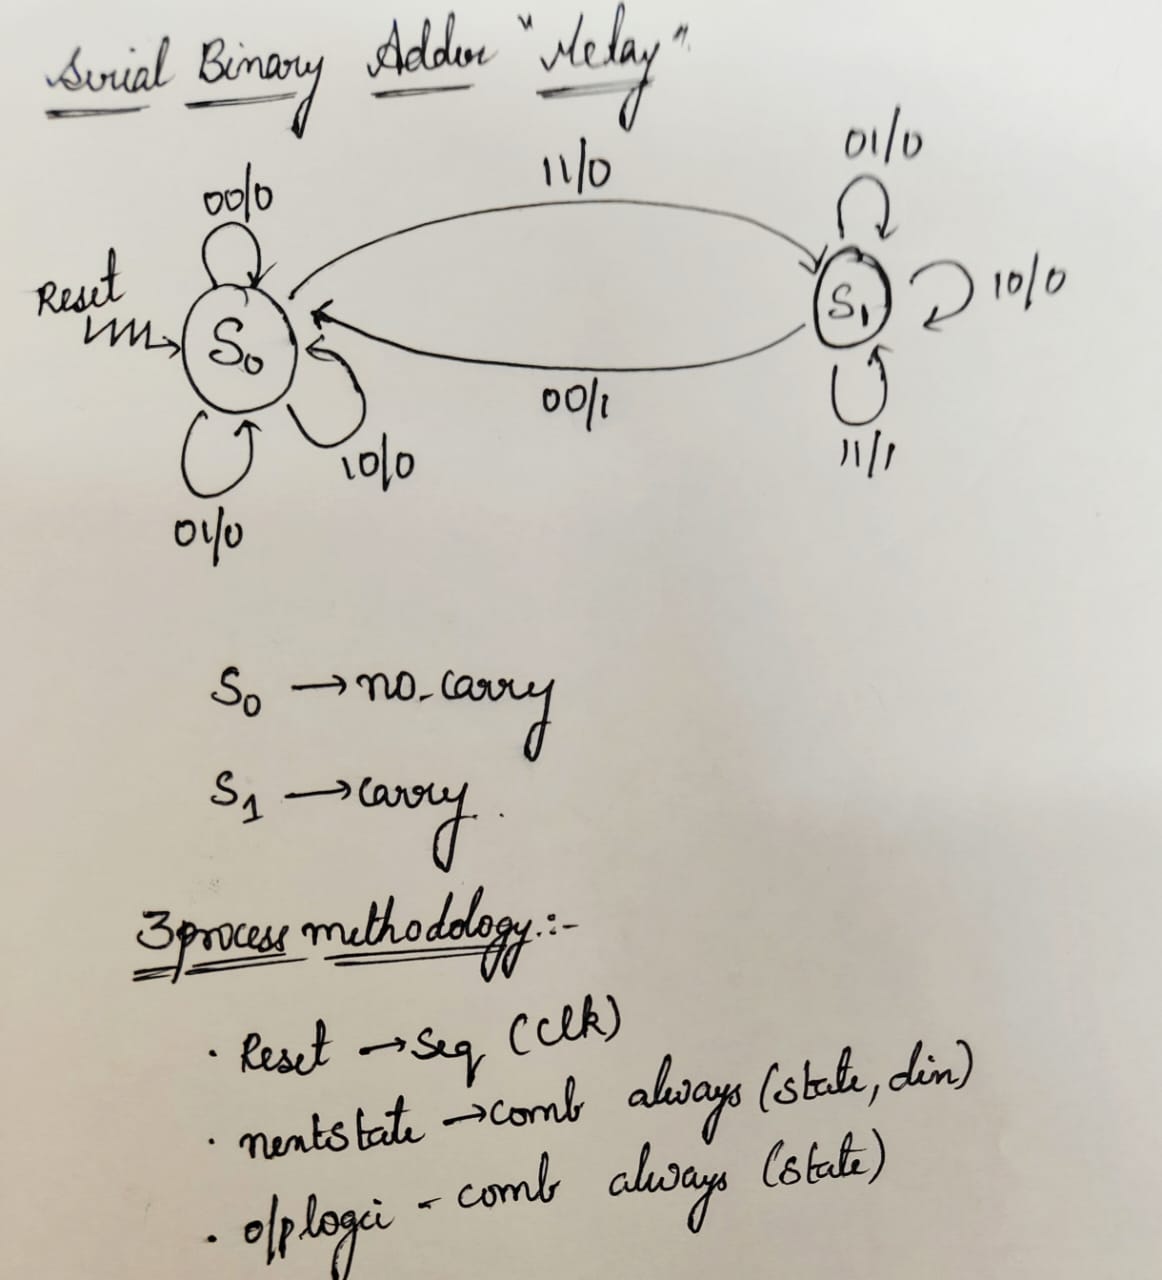 Serial Binary Adder "Melay"
11/0
01/0
00/0
Reset
S0
S1
10/0
00/1
10/0
11/1
01/0
S0 → no-carry
S1 → carry.
3 process methodology:-
· Reset → Seq (clk)
· nentstate → comb always (state, din)
· o/p logci - comb always (state)